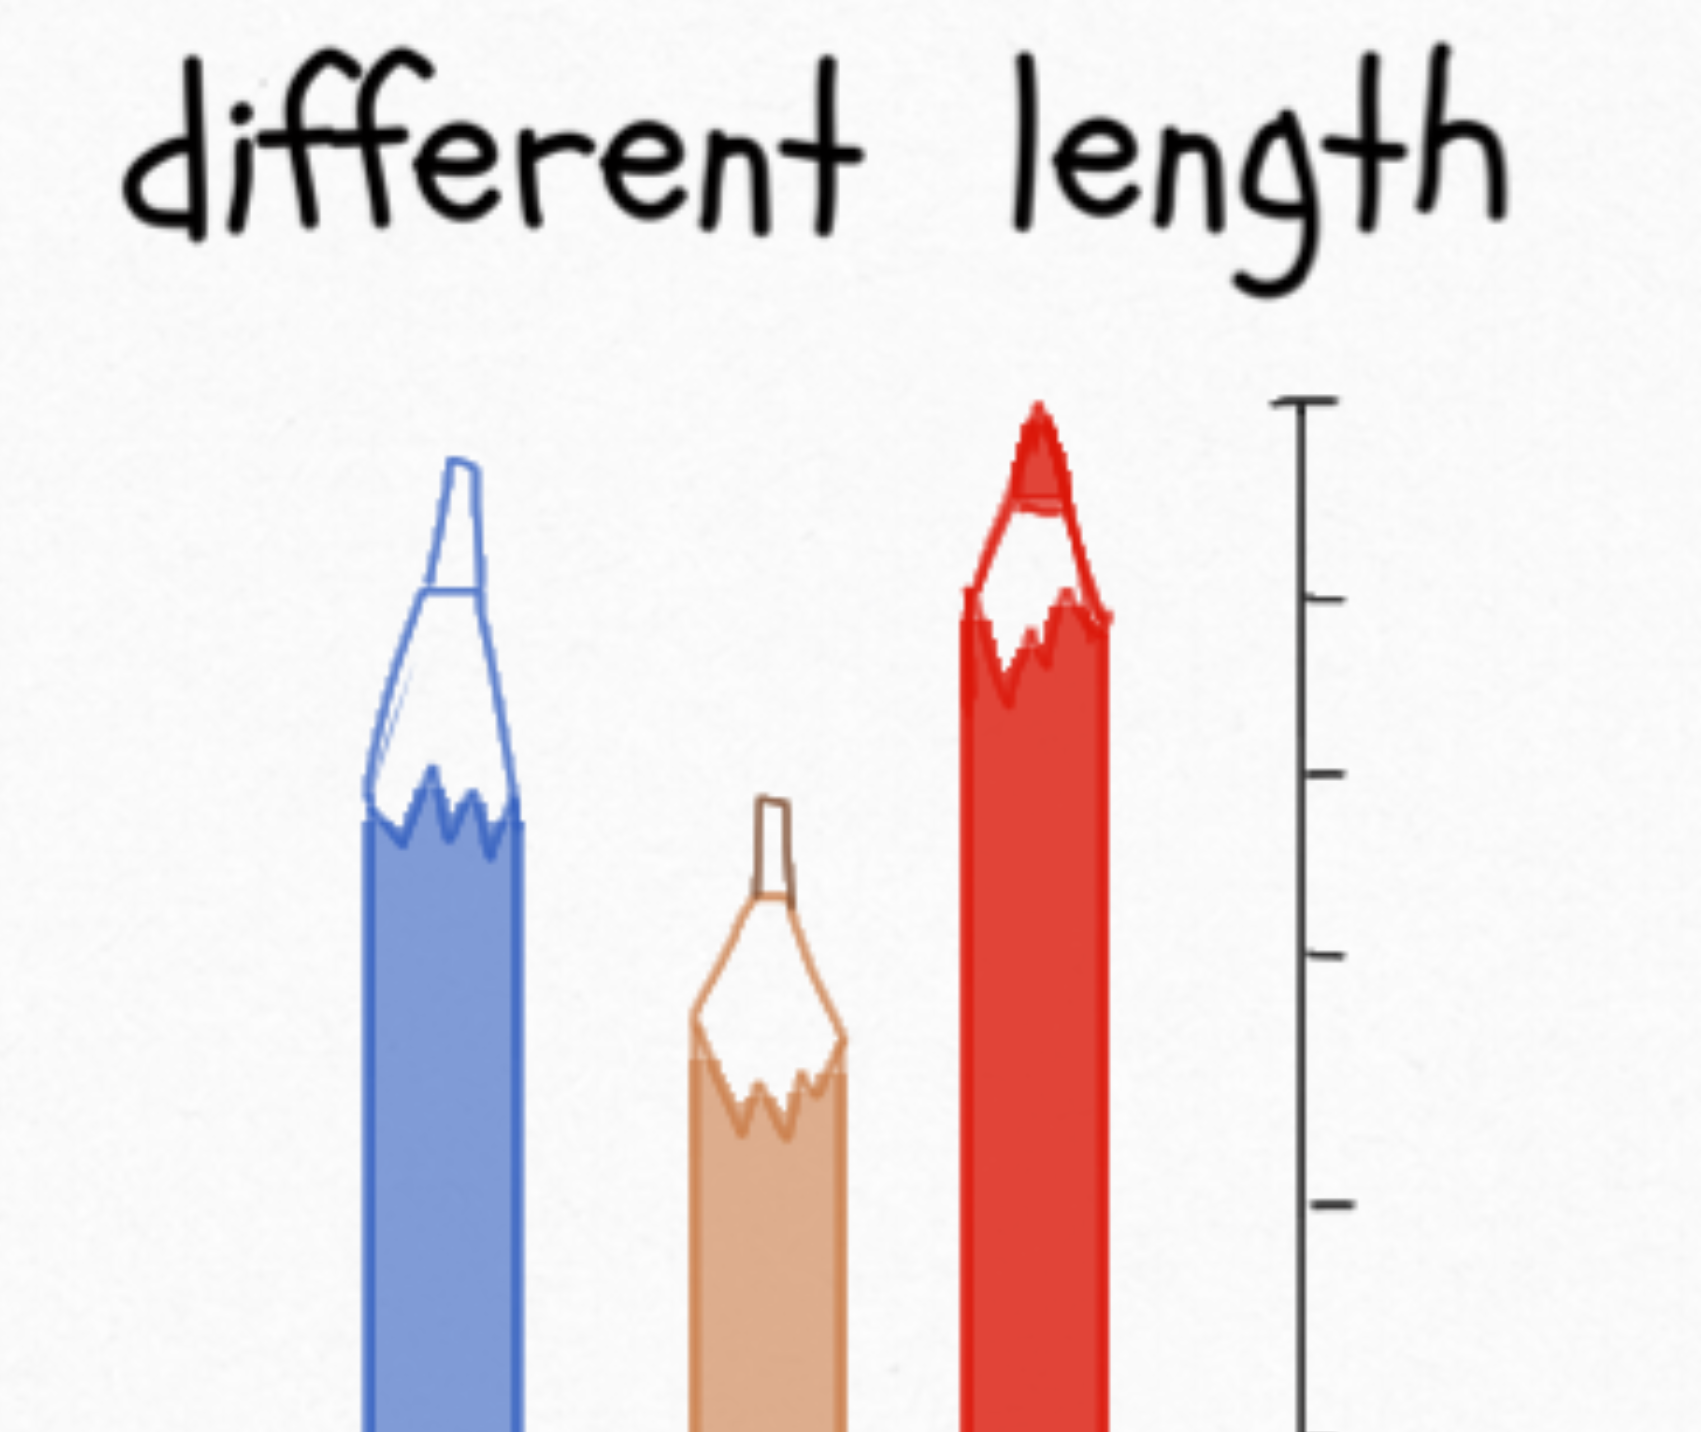 different length